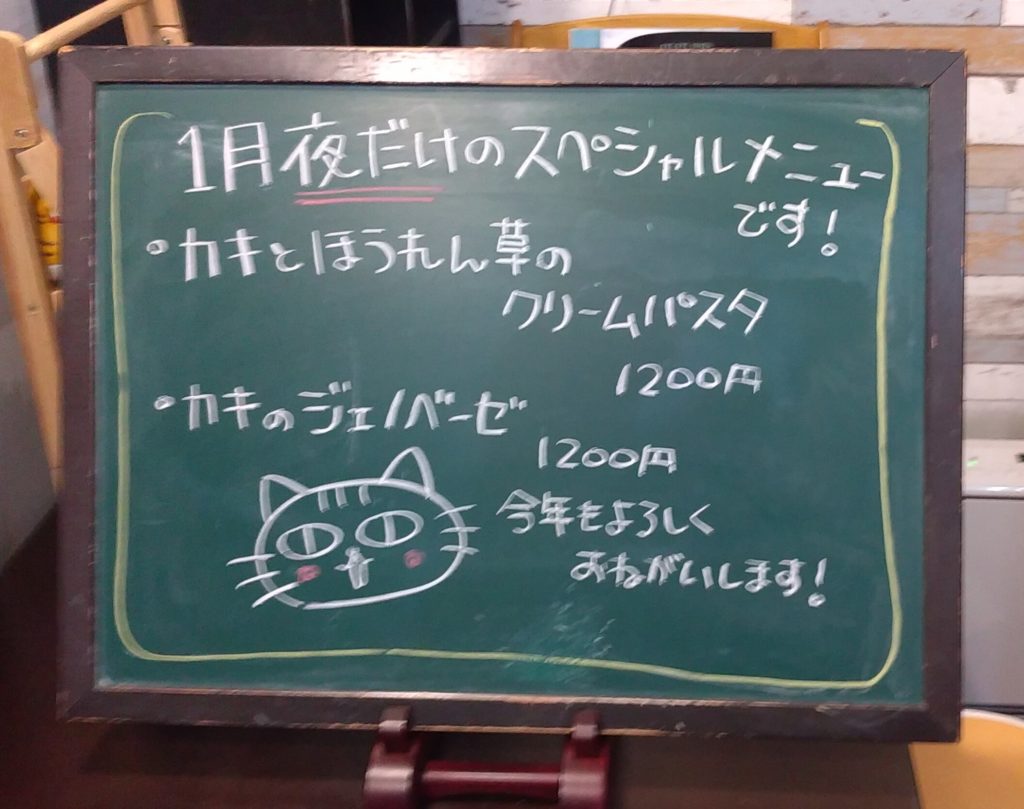 1月夜だけのスペシャルメニュー
です!
・カキとほうれん草の
クリームパスタ
1200円
・カキのジェノベーゼ
1200円
今年もよろしく
おねがいします!